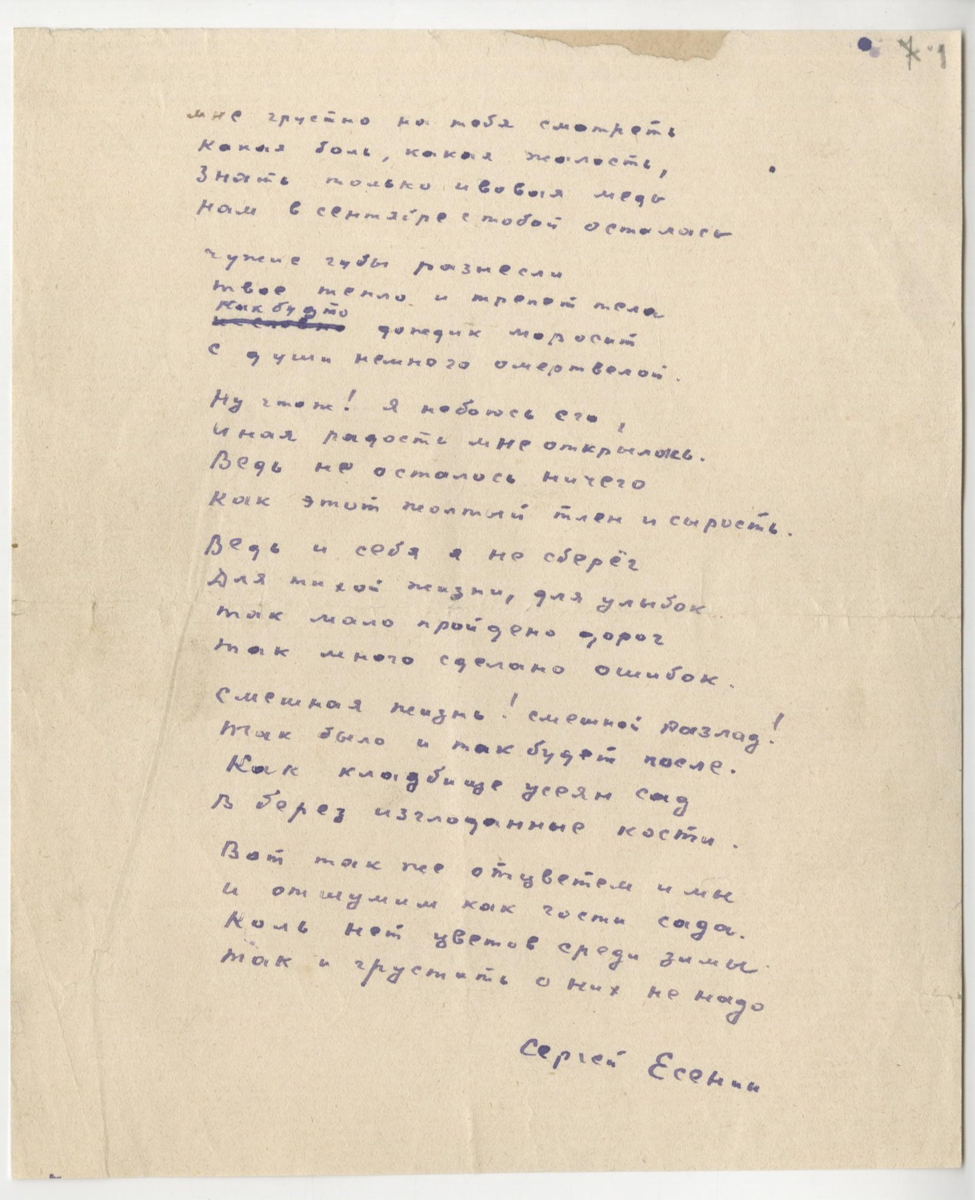 7.1
мне грустно на тебя смотреть
Какая боль, какая жалость,
Знать только ивовая медь
Нам в сентябре с тобой осталась
Чужие губы разнесли
Твое тепло и трепет тела
Как будто
дождик моросит
С души немного омертвелой.
Ну чтож! Я небоюсь его,
Иная радость мне открылась.
Ведь не осталось ничего
Как этот жолтый тлен и сырость.
Ведь и себя я не сберёг
Для тихой жизни, для улыбок
Так мало пройдено дорог
Так много сделано ошибок.
Смешная жизнь! смешной разлад!
Так было и так будет после.
Как кладбище усеян сад
В берез изглоданные кости.
Вот так же отцветем и мы
И отшумим как гости сада.
Коль нет цветов среди зимы
Так и грустить о них не надо
Сергей Есенин